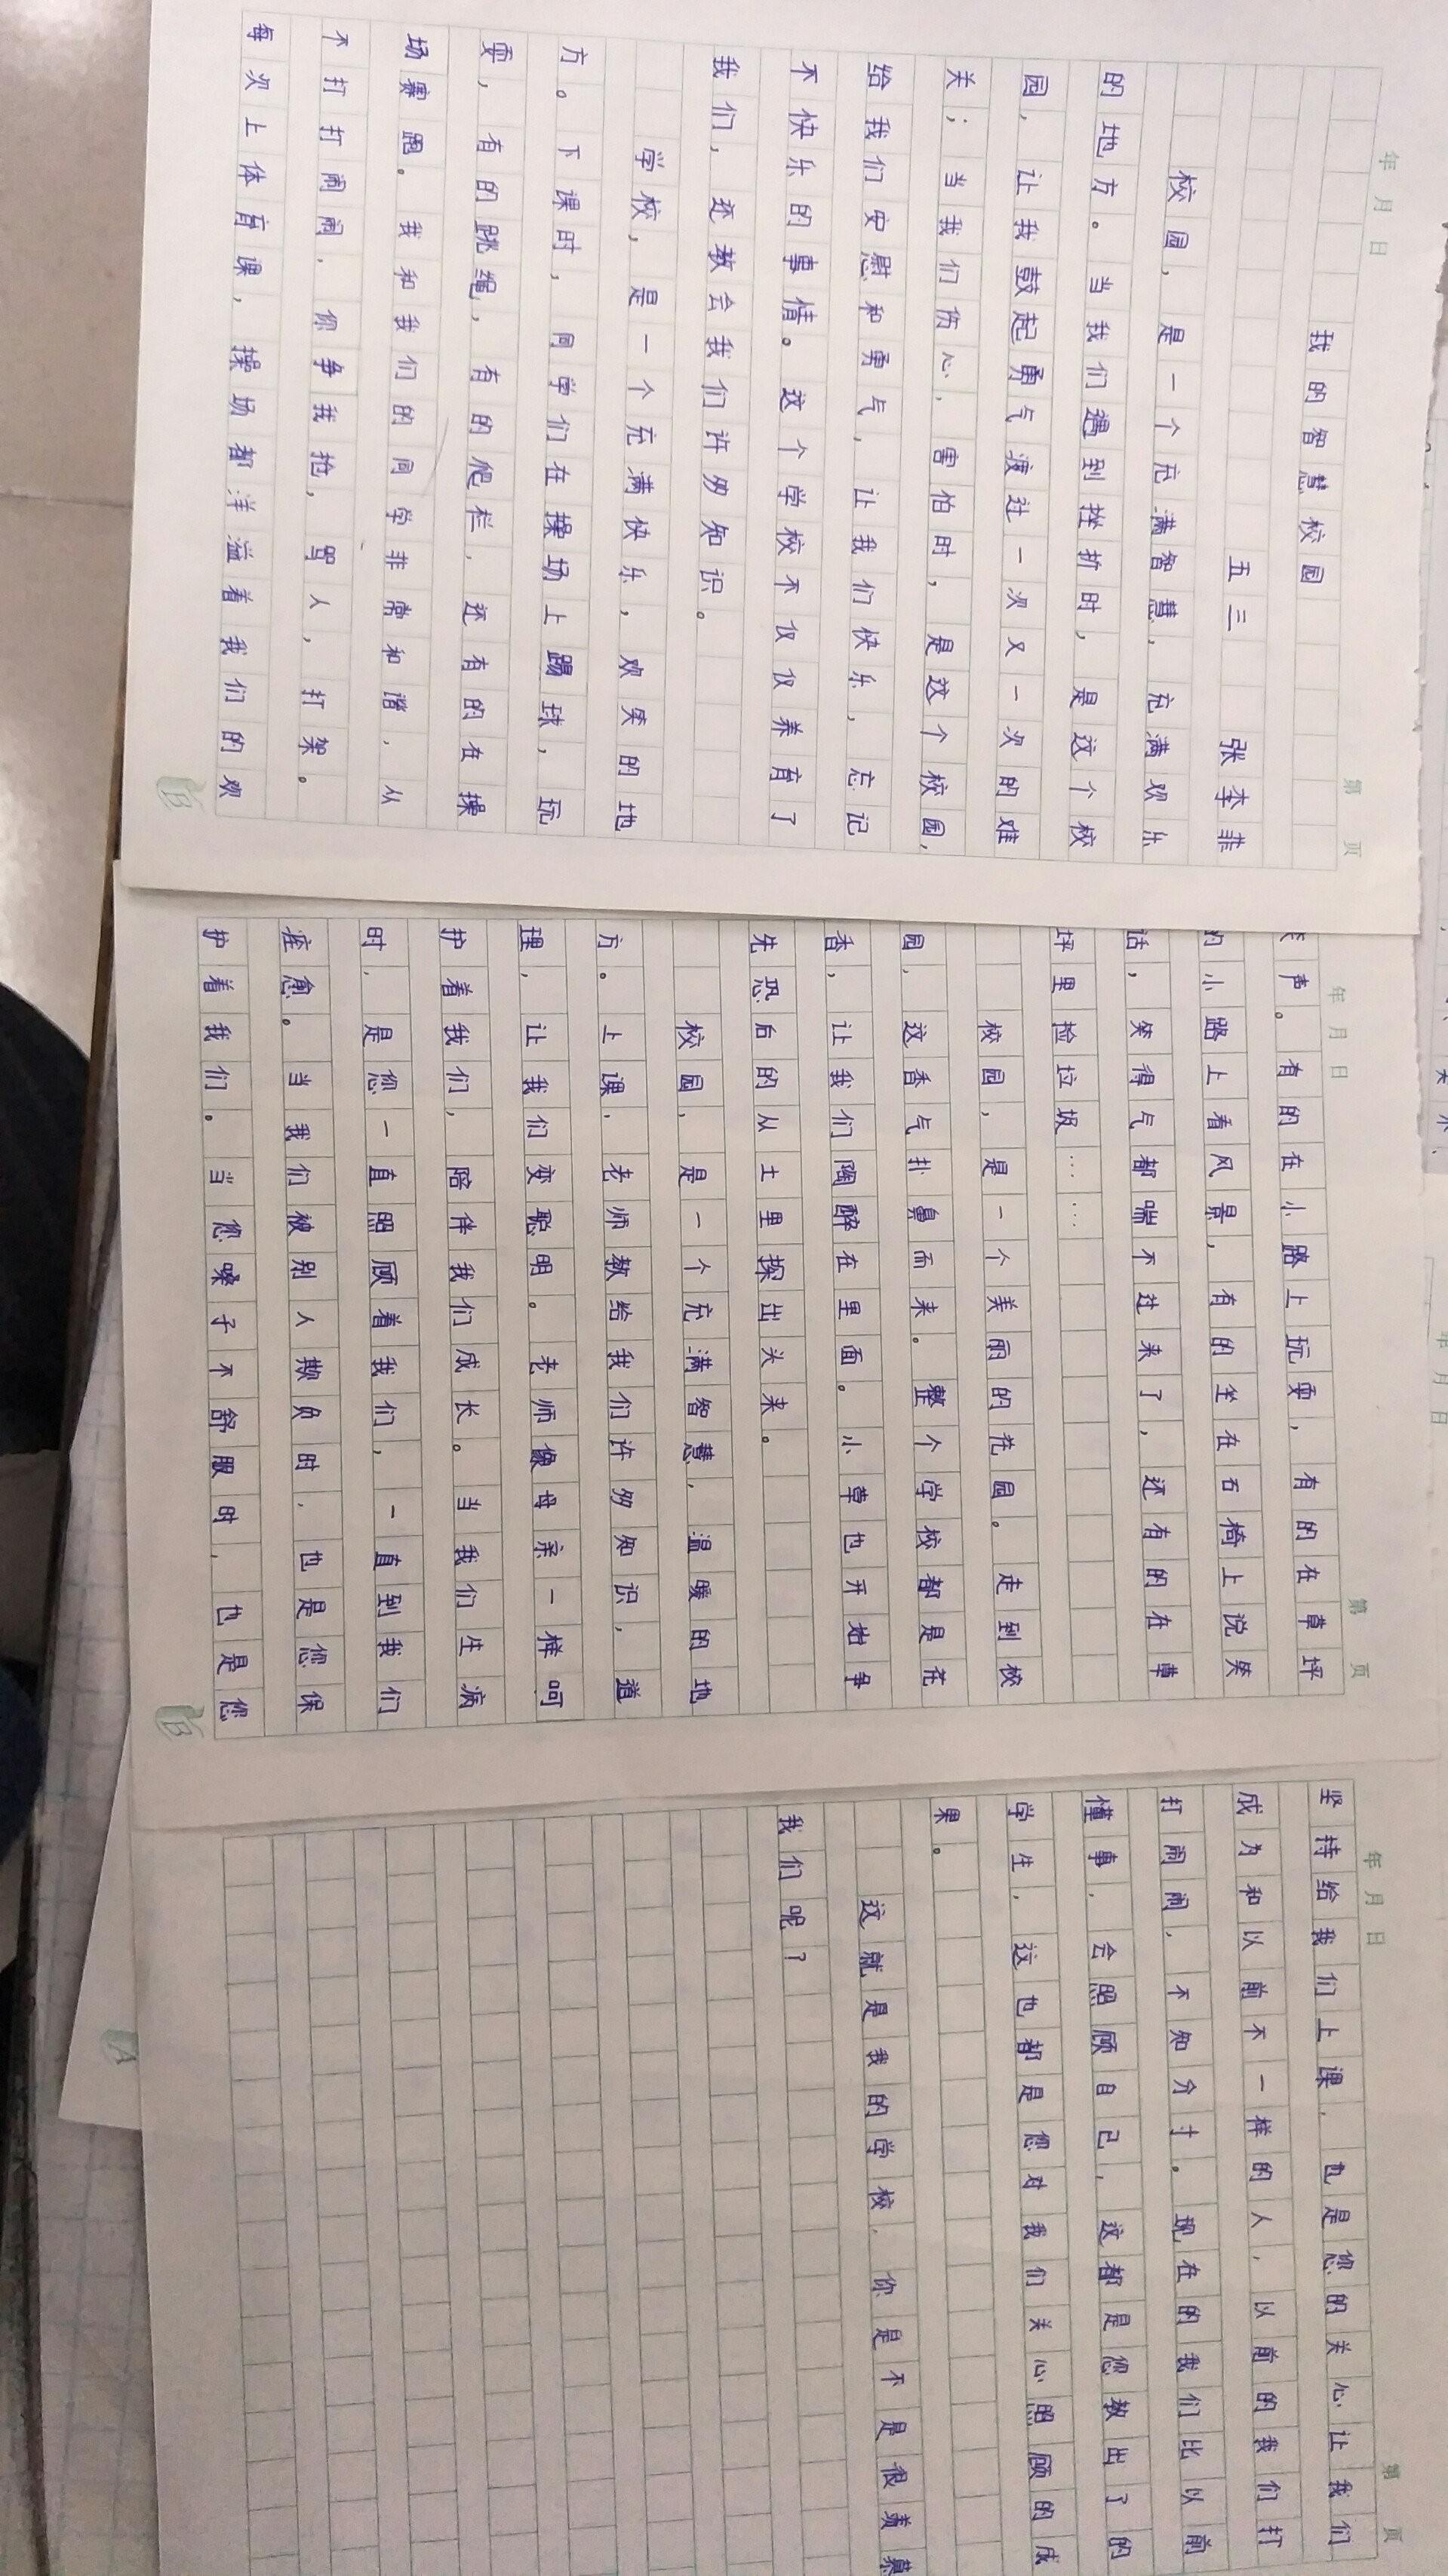 年 月 日
第 页
我的智慧校园
五三 张李菲
校园，是一个充满智慧，充满欢乐
的地方。当我们遇到挫折时，是这个校
园，让我鼓起勇气渡过一次又一次的难
关；当我们伤心，害怕时，是这个校园，
给我们安慰和勇气，让我们快乐，忘记
不快乐的事情。这个学校不仅仅养育了
我们，还教会我们许多知识。
学校，是一个充满快乐，欢笑的地
方。下课时，同学们在操场上踢球，玩
耍，有的跳绳，有的爬栏，还有的在操
场赛跑。我和我们的同学非常和谐，从
不打打闹闹，你争我抢，骂人，打架。
每次上体育课，操场都洋溢着我们的欢
年 月 日
第 页
笑声。有的在小路上玩耍，有的在草坪
的小路上看风景，有的坐在石椅上说笑
话，笑得气都喘不过来了，还有的在草
坪里捡垃圾……
校园，是一个美丽的花园。走到校
园，这香气扑鼻而来。整个学校都是花
香，让我们陶醉在里面。小草也开始争
先恐后的从土里探出头来。
校园，是一个充满智慧，温暖的地
方。上课，老师教给我们许多知识，道
理，让我们变聪明。老师像母亲一样呵
护着我们，陪伴我们成长。当我们生病
时，是您一直照顾着我们，一直到我们
痊愈。当我们被别人欺负时，也是您保
护着我们。当您嗓子不舒服时，也是您
年 月 日
第 页
坚持给我们上课，也是您的关心让我们
成为和以前不一样的人，以前的我们打
打闹闹，不知分寸。现在的我们比以前
懂事，会照顾自己，这都是您教出了的
学生，这也都是您对我们关心照顾的成
果。
这就是我的学校，你是不是很羡慕
我们呢？